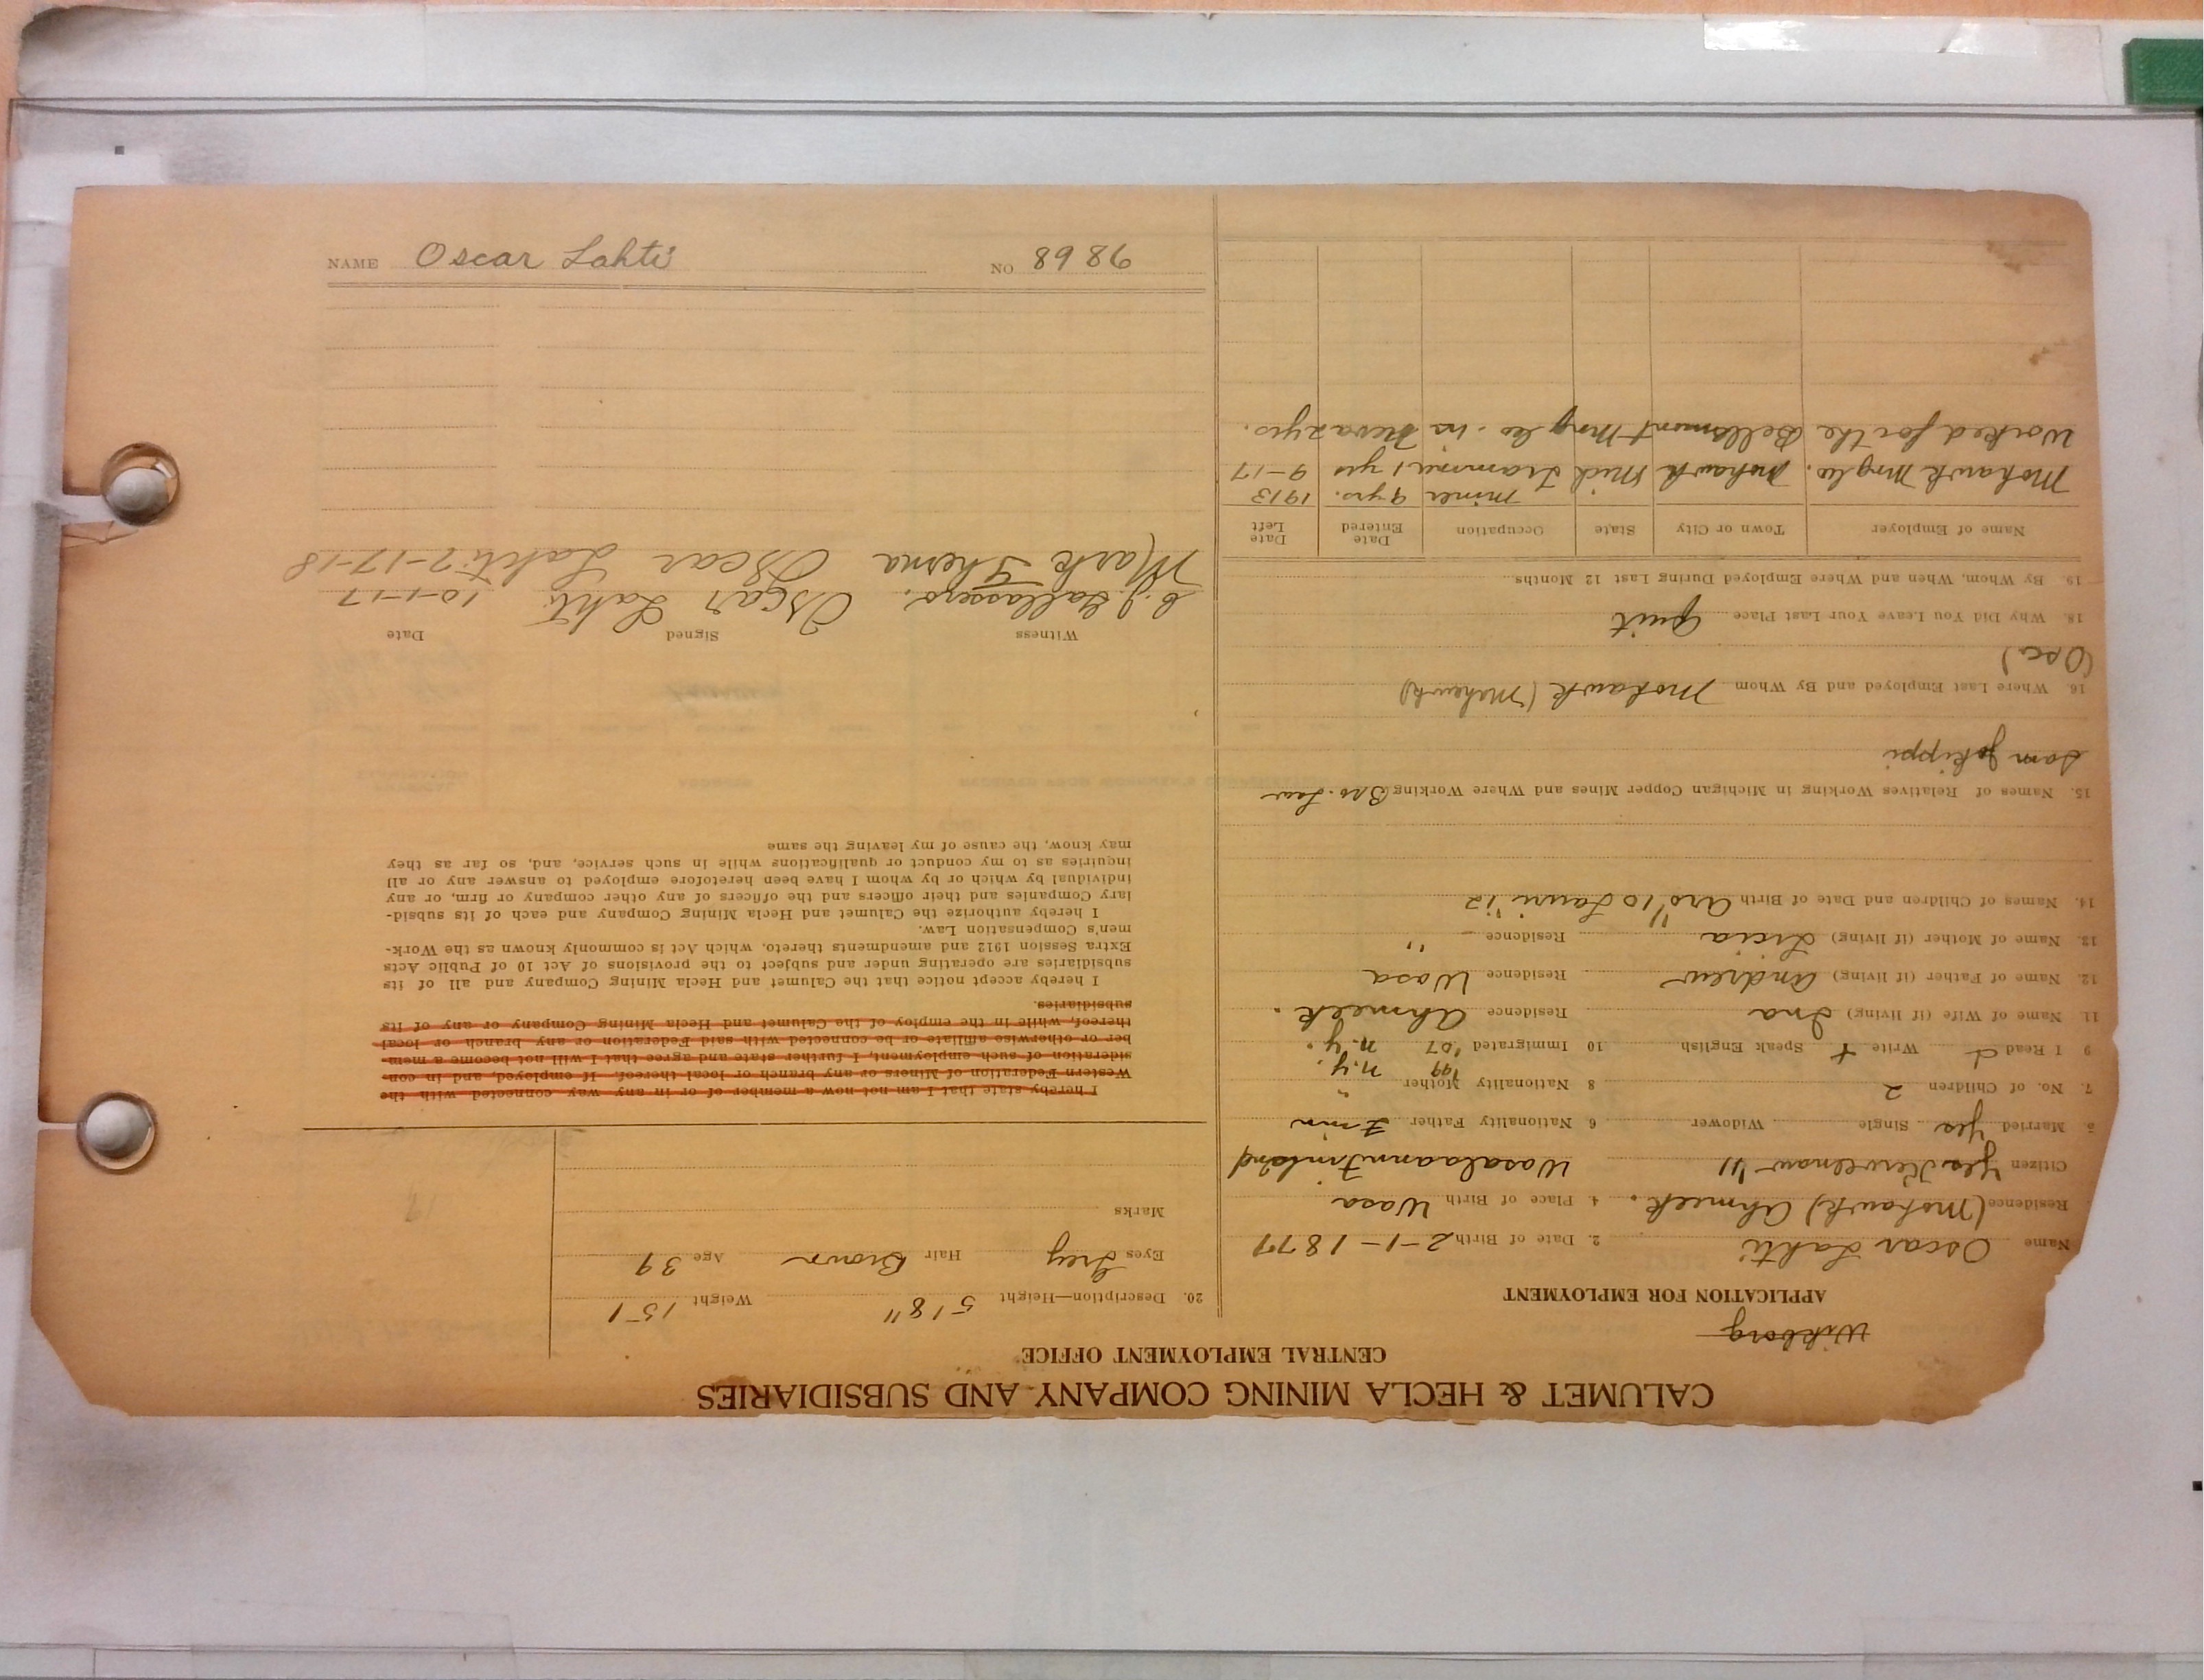 CALUMET & HECLA MINING COMPANY AND SUBSIDIARIES
CENTRAL EMPLOYMENT OFFICE
Wikborg
APPLICATION FOR EMPLOYMENT
Name Oscar Lahti 2. Date of Birth 2-1-1877
Residence (Mohawk) Ahmeek. 4. Place of Birth Wasa
Citizen Yes Keweenaw '11 Wasalaann Finland
5 Married Yes Single Widower 6 Nationality Father Finn
7. No. of Children 2 8 Nationality Mother "
'99 N.Y.
9 I Read Write + Speak English 10 Immigrated '07 N.Y.
11. Name of Wife (if living) Ina Residence Ahmeek.
12. Name of Father (if living) Andrew Residence Wasa
13. Name of Mother (if living) Residence "
14. Names of Children and Date of Birth '10 Lauri '12
15. Names of Relatives Working in Michigan Copper Mines and Where Working Bro. Law
Sam
16. Where Last Employed and By Whom Mohawk (Mohawk)
(Osc)
18. Why Did You Leave Your Last Place Quit
19. By Whom, When and Where Employed During Last 12 Months
Name of Employer Town or City State Occupation Date Entered Date Left
Miner 9 yrs. 1913
Mohawk Mng Co. Mohawk Mich Trammer 1 yrs 9-17
Worked for the Mng Co. in 2 yrs.
20. Description—Height 5' 8" Weight 151
Eyes Grey Hair Brown Age 39
Marks
I hereby state that I am not now a member of or in any way connected with the
Western Federation of Miners or any branch or local thereof. If employed, and in con-
sideration of such employment, I further state and agree that I will not become a mem-
ber or otherwise affiliate or be connected with said Federation or any branch or local
thereof, while in the employ of the Calumet and Hecla Mining Company or any of its
subsidiaries.
I hereby accept notice that the Calumet and Hecla Mining Company and all of its
subsidiaries are operating under and subject to the provisions of Act 10 of Public Acts
Extra Session 1912 and amendments thereto, which Act is commonly known as the Work-
men's Compensation Law.
I hereby authorize the Calumet and Hecla Mining Company and each of its subsid-
iary Companies and their officers and the officers of any other company or firm, or any
individual by which or by whom I have been heretofore employed to answer any or all
inquiries as to my conduct or qualifications while in such service, and, so far as they
may know, the cause of my leaving the same
Witness Signed Date
Oscar Lahti 10-1-17
Mark Oscar Lahti 2-17-18
NAME Oscar Lahti NO 89786